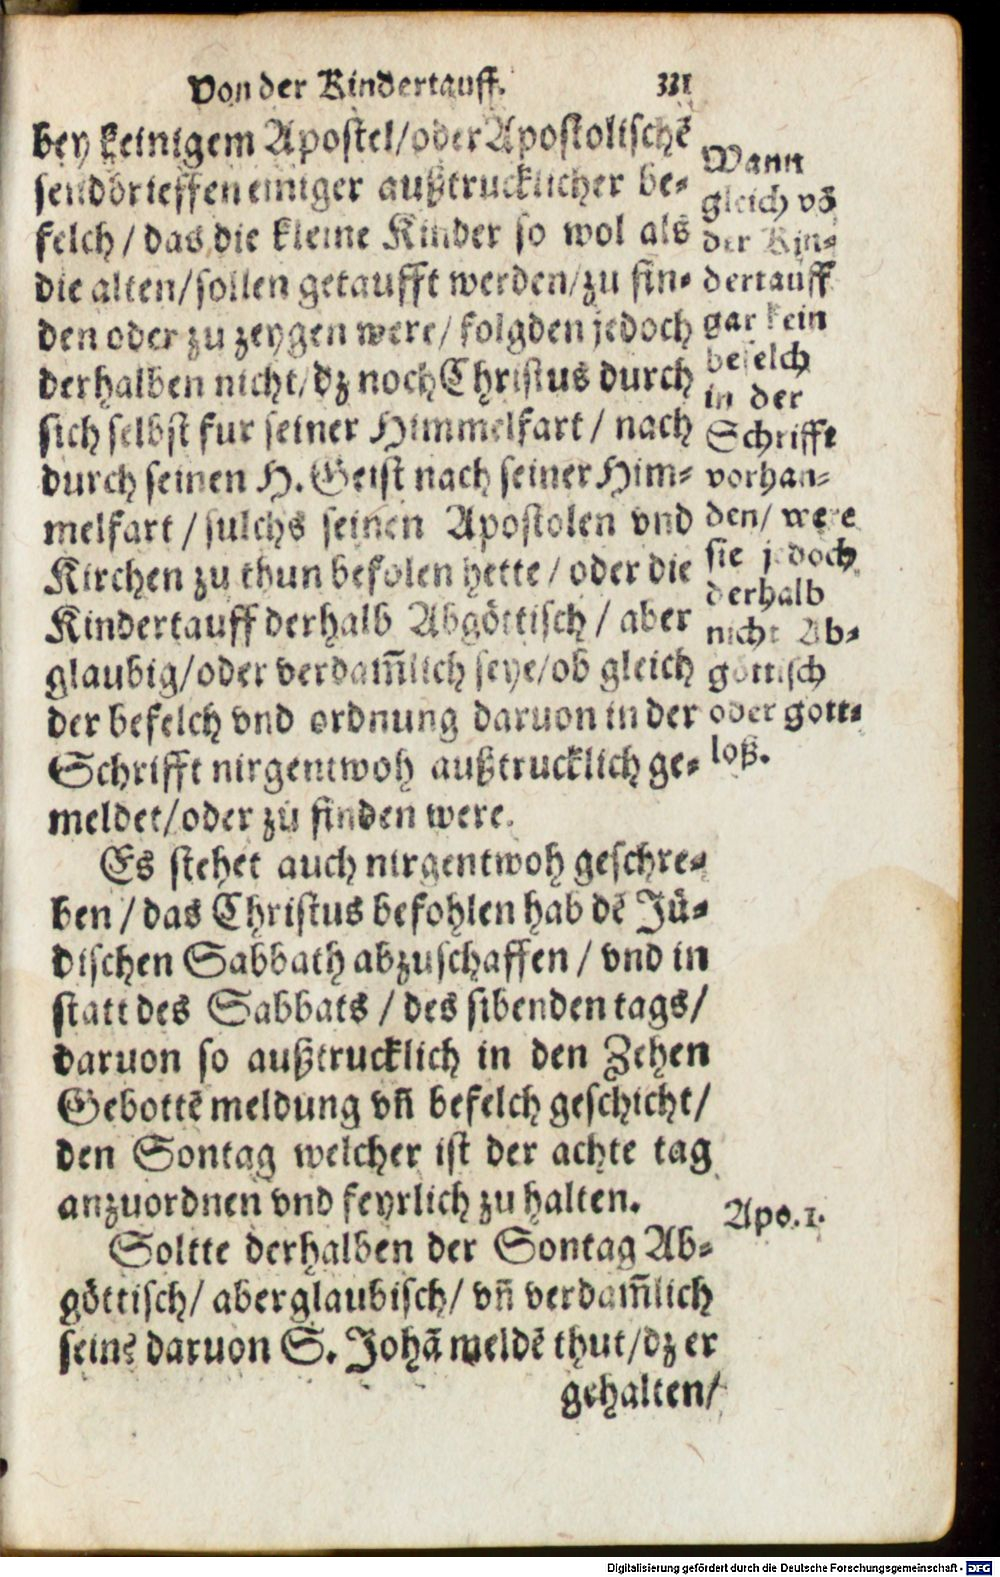 Von der Kindertauff. 331
bey keinigem Apostel/oder Apostolischē
sendbrieffen einiger außtrucklicher be-
felch / das die kleine Kinder so wol als
die alten/sollen getaufft werden/zu fin-
den oder zu zeygen were/ folgden jedoch
derhalben nicht/dz noch Christus durch
sich selbst fur seiner Himmelfart / nach
durch seinen H. Geist nach seiner Him-
melfart / sulchs seinen Apostolen vnd
Kirchen zu thun befolen hette / oder die
Kindertauff derhalb Abgöttisch / aber
glaubig/oder verdam̃lich seye/ob gleich
der befelch vnd ordnung daruon in der
Schrifft nirgentwoh außtrucklich ge-
meldet/oder zu finden were.
Wann
gleich võ
der Kin-
dertauff
gar kein
befelch
in der
Schrifft
vorhan-
den/ were
sie jedoch
derhalb
nicht Ab-
göttisch
oder gott-
loß.
Es stehet auch nirgentwoh geschre-
ben / das Christus befohlen hab dē Jü-
dischen Sabbath abzuschaffen / vnd in
statt des Sabbats / des sibenden tags/
daruon so außtrucklich in den Zehen
Gebottē meldung vñ befelch geschicht/
den Sontag welcher ist der achte tag
anzuordnen vnd feyrlich zu halten.
Soltte derhalben der Sontag Ab-
göttisch/ aberglaubisch/ vñ verdam̃lich
sein? daruon S. Johā meldē thut/dz er
gehalten/
Apo. 1.
Digitalisierung gefördert durch die Deutsche Forschungsgemeinschaft - DFG